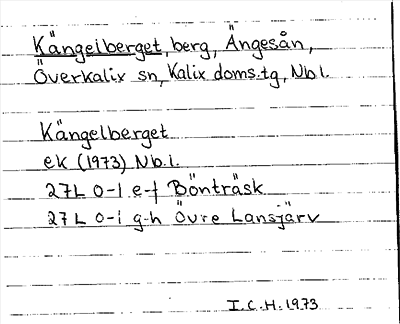 Kängelberget, berg, Ängesån,
Överkalix sn, Kalix doms.tg, Nb l.
Kängelberget
ek (1973) Nb.l.
27L 0-1 e-f Bönträsk
27L 0-1 g-h Övre Lansjärv
I.C.H. 1973